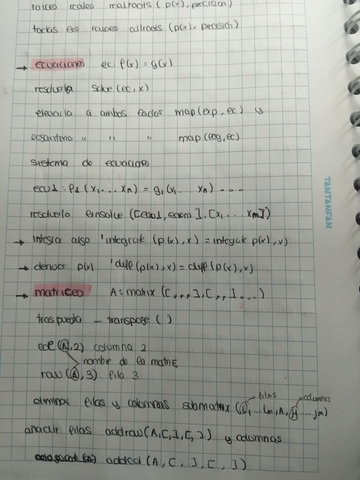 raices reales realroots (p(x), precision)
todas las raices allroots (p(x), precision)
→ ecuaciones ec: f(x) = g(x)
resolverla solve (ec, x)
elevarla a ambos lados map(exp, ec) y
logaritmo " " " map(log, ec)
sistema de ecuaciones
ecu1: f1 (x1 ... xn) = g1(x1 ... xn) ---
resolverlo linsolve ([ecu1, ecum], [x1, ... xm])
→ integrar algo 'integrate (p(x), x) = integrate p(x), x)
→ derivar p(x) 'diff (p(x), x) = diff (p(x), x)
→ matrices A: matrix ([,,,], [,,]...)
traspuesta - transpose ( )
col (A, 2) columna 2
nombre de la matriz
row (A, 3) fila 3
filas columnas
eliminar filas y columnas submatrix (i, ... im, A, j ... jm)
añadir filas addrow (A, [,], [, ]) y columnas
addcol (A, [ , ], [ , ])
TANTANFAN